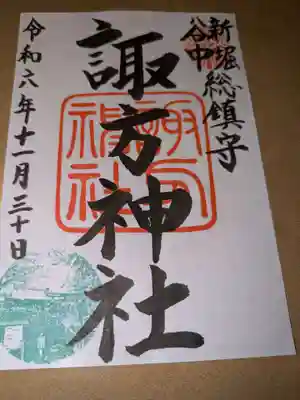 新堀
谷中
総鎮守
諏方神社
令和六年十一月三十日
諏方
神社